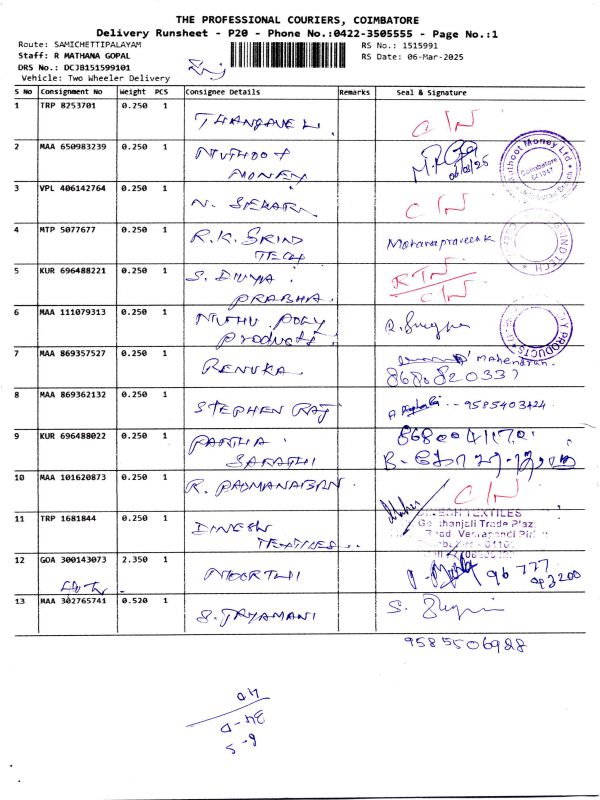 THE PROFESSIONAL COURIERS, COIMBATORE
Delivery Runsheet - P20 - Phone No.:0422-3505555 - Page No.:1
Route: SAMICHETTIPALAYAM
RS No.: 1515991
Staff: R MATHANA GOPAL
RS Date: 06-Mar-2025
DRS No.: DCJB151599101
Vehicle: Two Wheeler Delivery
S No Consignment No Weight PCS Consignee Details Remarks Seal & Signature
1 TRP 8253701 0.250 1 THANGAVELU C/N
2 MAA 650983239 0.250 1 MUTHOOT
MONEY
06/03/25
Muthoot Money Ltd
Coimbatore
3 VPL 406142764 0.250 1 N. SEKAR C/N
4 MTP 5077677 0.250 1 R.K. GRIND
TECH
Mohanapraveen k
GRIND TECH
5 KUR 696488221 0.250 1 S. DIVYA
PRABHA
RTN
C/N
6 MAA 111079313 0.250 1 MUTHU POLY
PRODUCTS
Y PRODUCTS
7 MAA 869357527 0.250 1 RENUKA Mahendran.
8 MAA 869362132 0.250 1 STEPHEN RAJ 9585403424
9 KUR 696488022 0.250 1 PARTHA
SARATHI
10 MAA 101620873 0.250 1 R. PADMANABAN C/N
11 TRP 1681844 0.250 1 DINESH
TEXTILES
DINESH TEXTILES
Geethanjali Trade Plaz
12 GOA 300143073 2.350 1 MOORTHI 96 777
043200
13 MAA 302765741 0.520 1 S. JAYAMANI
9585506928
40
34-D
6-5